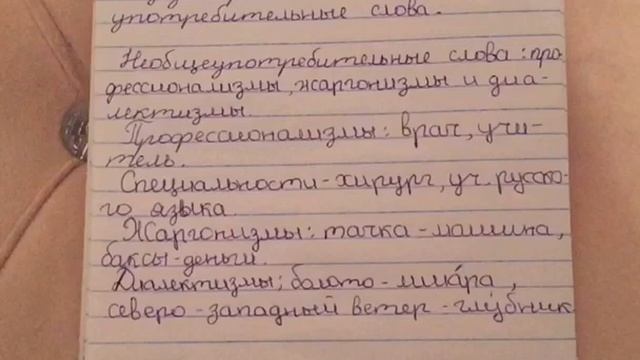 употребительные слова.
Необщеупотребительные слова: про-
фессионализмы, жаргонизмы и диа-
лектизмы.
Профессионализмы: врач, учи-
тель.
Специальности - хирург, уч. русско-
го языка
Жаргонизмы: тачка - машина,
баксы - деньги.
Диалектизмы: болото - шмáра,
северо - западный ветер - глубник